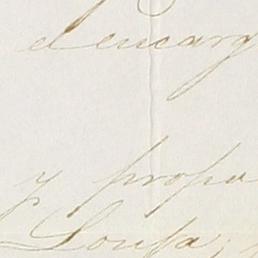 el encarg
y propo
Lousa;